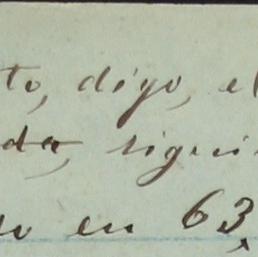 to, digo, el
da, sigui
do en 63,